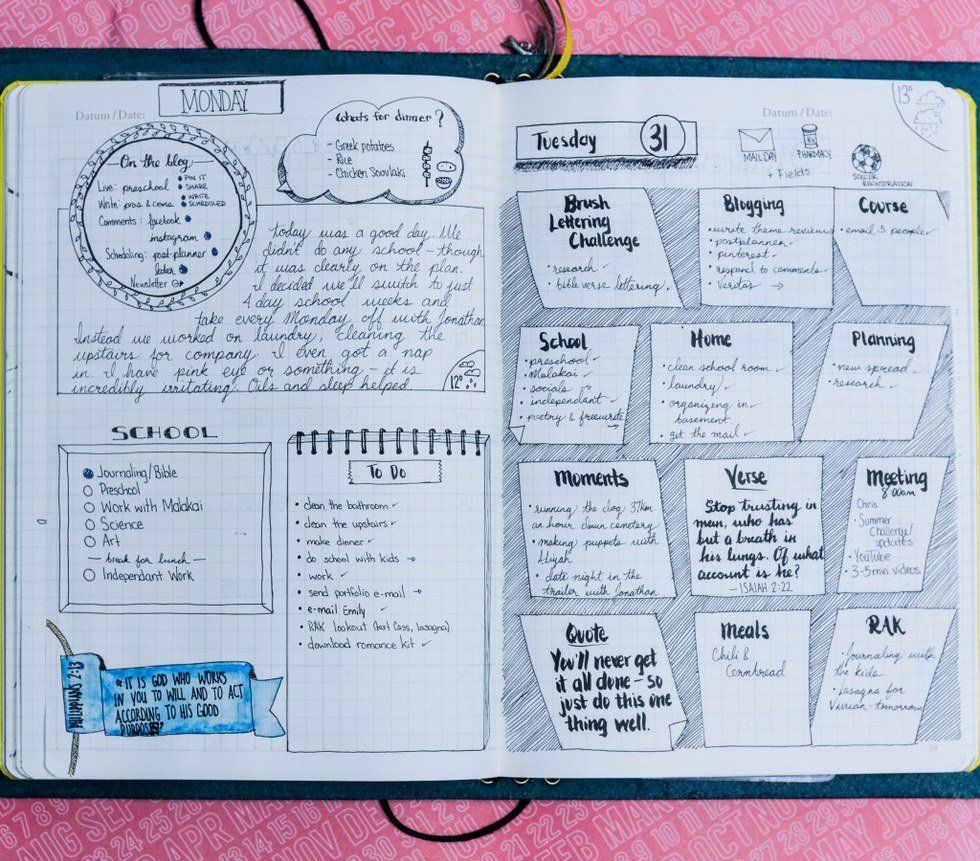 MONDAY
Datum / Date:
On the blog
Live: preschool • PIN IT
• SHARE
Write: pros & cons • WRITE
• SCHEDULED
Comments: facebook
instagram
Scheduling: post-planner
later
Newsletter
Whats for dinner?
- Greek potatoes
- Rice
- Chicken Souvlaki
today was a good day. We
didnt do any school - though
it was clearly on the plan.
I decided we'll switch to just
4 day school weeks and
take every Monday off with Jonathan
Instead we worked on laundry, cleaning the
upstairs for company. I even got a nap
in. I have pink eye or something - it is
incredibly irritating. Oils and sleep helped.
12°
SCHOOL
Journaling/Bible
Preschool
Work with Malakai
Science
Art
— break for lunch —
Independant Work
To Do
• clean the bathroom ✓
• clean the upstairs ✓
• make dinner ✓
• do school with kids →
• work ✓
• send portfolio e-mail →
• e-mail Emily ✓
• RAK lookout (
lasagna)
• download romance kit ✓
PHILIPPIANS 2:13
"IT IS GOD WHO WORKS
IN YOU TO WILL AND TO ACT
ACCORDING TO HIS GOOD
PURPOSE"
Datum / Date:
13°
Tuesday 31
MAIL DAY
PHARMACY
+ Fields
SOCCER
REGISTRATION
Brush
Lettering
Challenge
• research ✓
• bible verse lettering ✓
Blogging
• write theme review
• postplanner ✓
• pinterest ✓
• respond to comments ✓
• Veritas →
Course
• email 5 people ✓
School
• preschool ✓
• Malakai ✓
• socials →
• independant ✓
• poetry & freewrite
→
Home
• clean school room ✓
• laundry ✓
• organizing in
basement
• get the mail ✓
Planning
• new spread ✓
• research ✓
Moments
• running the dog 37km
an hour down cemetery
• making puppets with
Eliyah
• date night in the
trailer with Jonathan
Verse
Stop trusting in
man, who has
but a breath in
his lungs. Of what
account is he?
— ISAIAH 2:22
Meeting
8:00am
Chris
• Summer
Challenge/
updates
• YouTube
• 3-5 min. videos
Quote
You'll never get
it all done - so
just do this one
thing well.
Meals
Chili &
Cornbread
RAK
• Journaling with
the kids
• lasagna for
Vivian-tomorrow